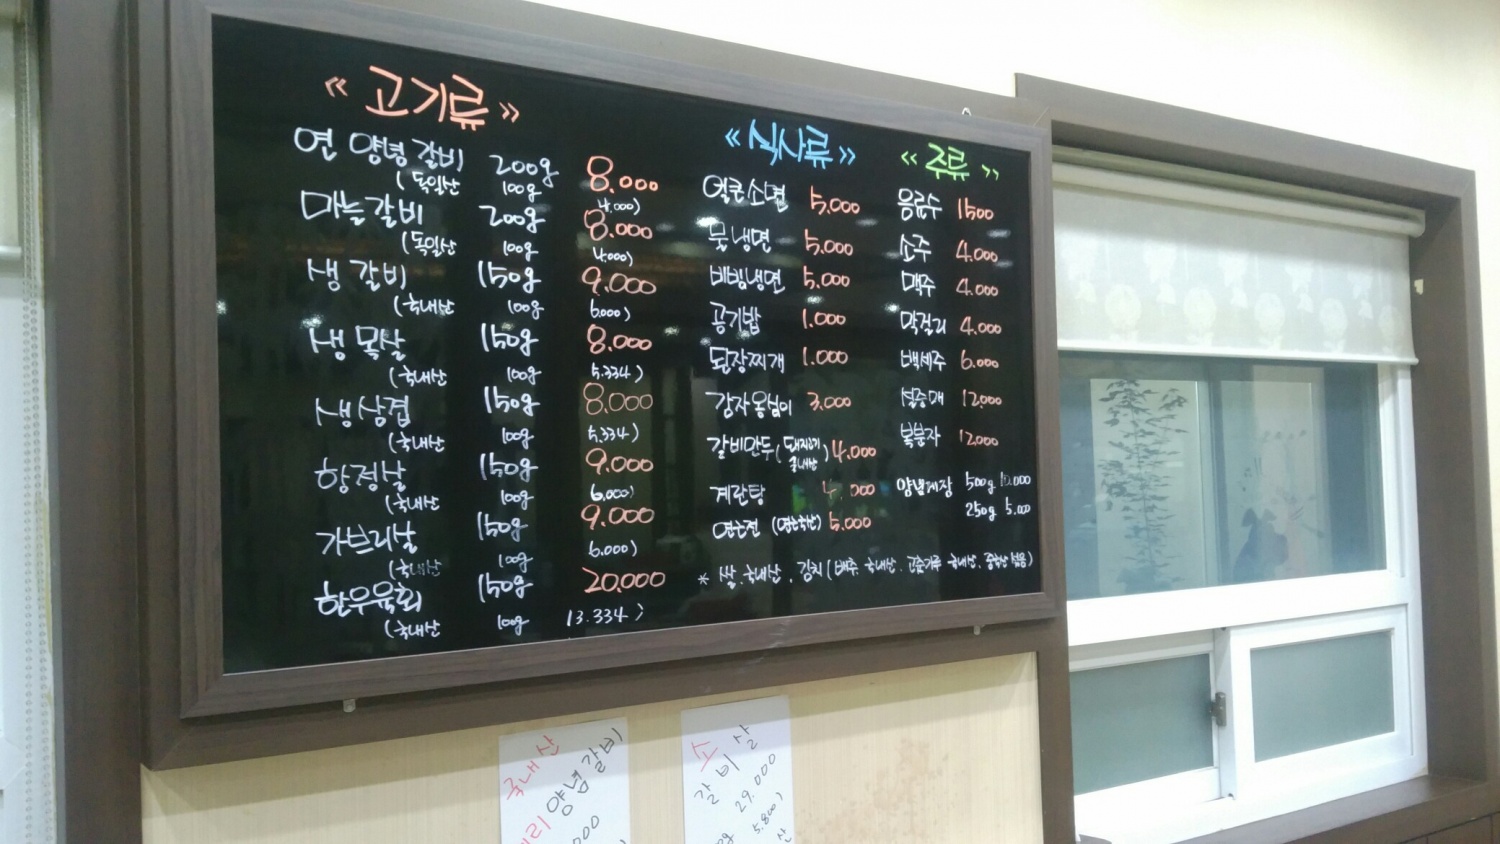 《 고기류 》
연 양념갈비 200g 8.000
( 독일산 100g 4.000)
마늘갈비 200g 8.000
(독일산 100g 4.000)
생 갈비 150g 9.000
(국내산 100g 6.000)
생 목살 150g 8.000
(국내산 100g 5.334)
생삼겹 150g 8.000
(국내산 100g 5.334)
항정살 150g 9.000
(국내산 100g 6.000)
가브리살 150g 9.000
(국내산 100g 6.000)
한우육회 150g 20.000
(국내산 100g 13.334)
《 식사류 》
얼큰소면 5.000
물냉면 5.000
비빔냉면 5.000
공기밥 1.000
된장찌개 1.000
감자옹심이 3.000
갈비만두(돼지고기 국내산) 4.000
계란탕 000
연근전 (연근국산) 5.000
《 주류 》
음료수 1500
소주 4.000
맥주 4.000
막걸리 4.000
백세주 6.000
설중매 12.000
복분자 12.000
양념게장 500g 10.000
250g 5.000
* 쌀.국내산 . 김치(배추. 국내산. 고춧가루 국내산. 중국산 섞음)
국내산
양념갈비
000
소
갈비살
29.000
5.800)
산